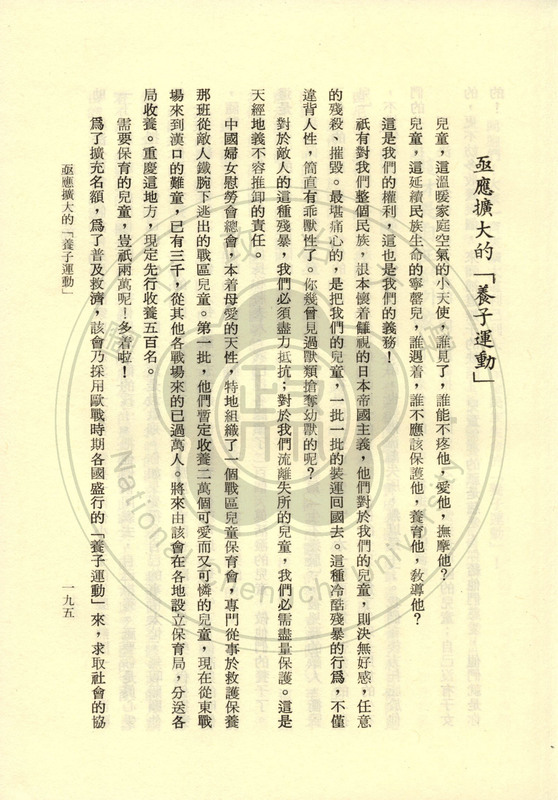 亟應擴大的「養子運動」
兒童，這溫暖家庭空氣的小天使，誰見了，誰能不疼他，愛他，撫摩他？
兒童，這延續民族生命的寧馨兒，誰遇着，誰不應該保護他，養育他，敎導他？
這是我們的權利，這也是我們的義務！
祇有對我們整個民族，根本懷着讎視的日本帝國主義，他們對於我們的兒童，則決無好感，任意
的殘殺、摧毀。最堪痛心的，是把我們的兒童，一批一批的裝運回國去。這種冷酷殘暴的行爲，不僅
違背人性，簡直有乖獸性了。你幾曾見過獸類搶奪幼獸的呢？
對於敵人的這種殘暴，我們必須盡力抵抗；對於我們流離失所的兒童，我們必需盡量保護。這是
天經地義不容推卸的責任。
中國婦女慰勞會總會，本着母愛的天性，特地組織了一個戰區兒童保育會，專門從事於救護保養
那班從敵人鐵腕下逃出的戰區兒童。第一批，他們暫定收養二萬個可愛而又可憐的兒童，現在從東戰
場來到漢口的難童，已有三千，從其他各戰場來的已過萬人。將來由該會在各地設立保育局，分送各
局收養。重慶這地方，現定先行收養五百名。
需要保育的兒童，豈祇兩萬呢！多着啦！
爲了擴充名額，爲了普及救濟，該會乃採用歐戰時期各國盛行的「養子運動」來，求取社會的協
亟應擴大的「養子運動」
一九五
National Chengchi University